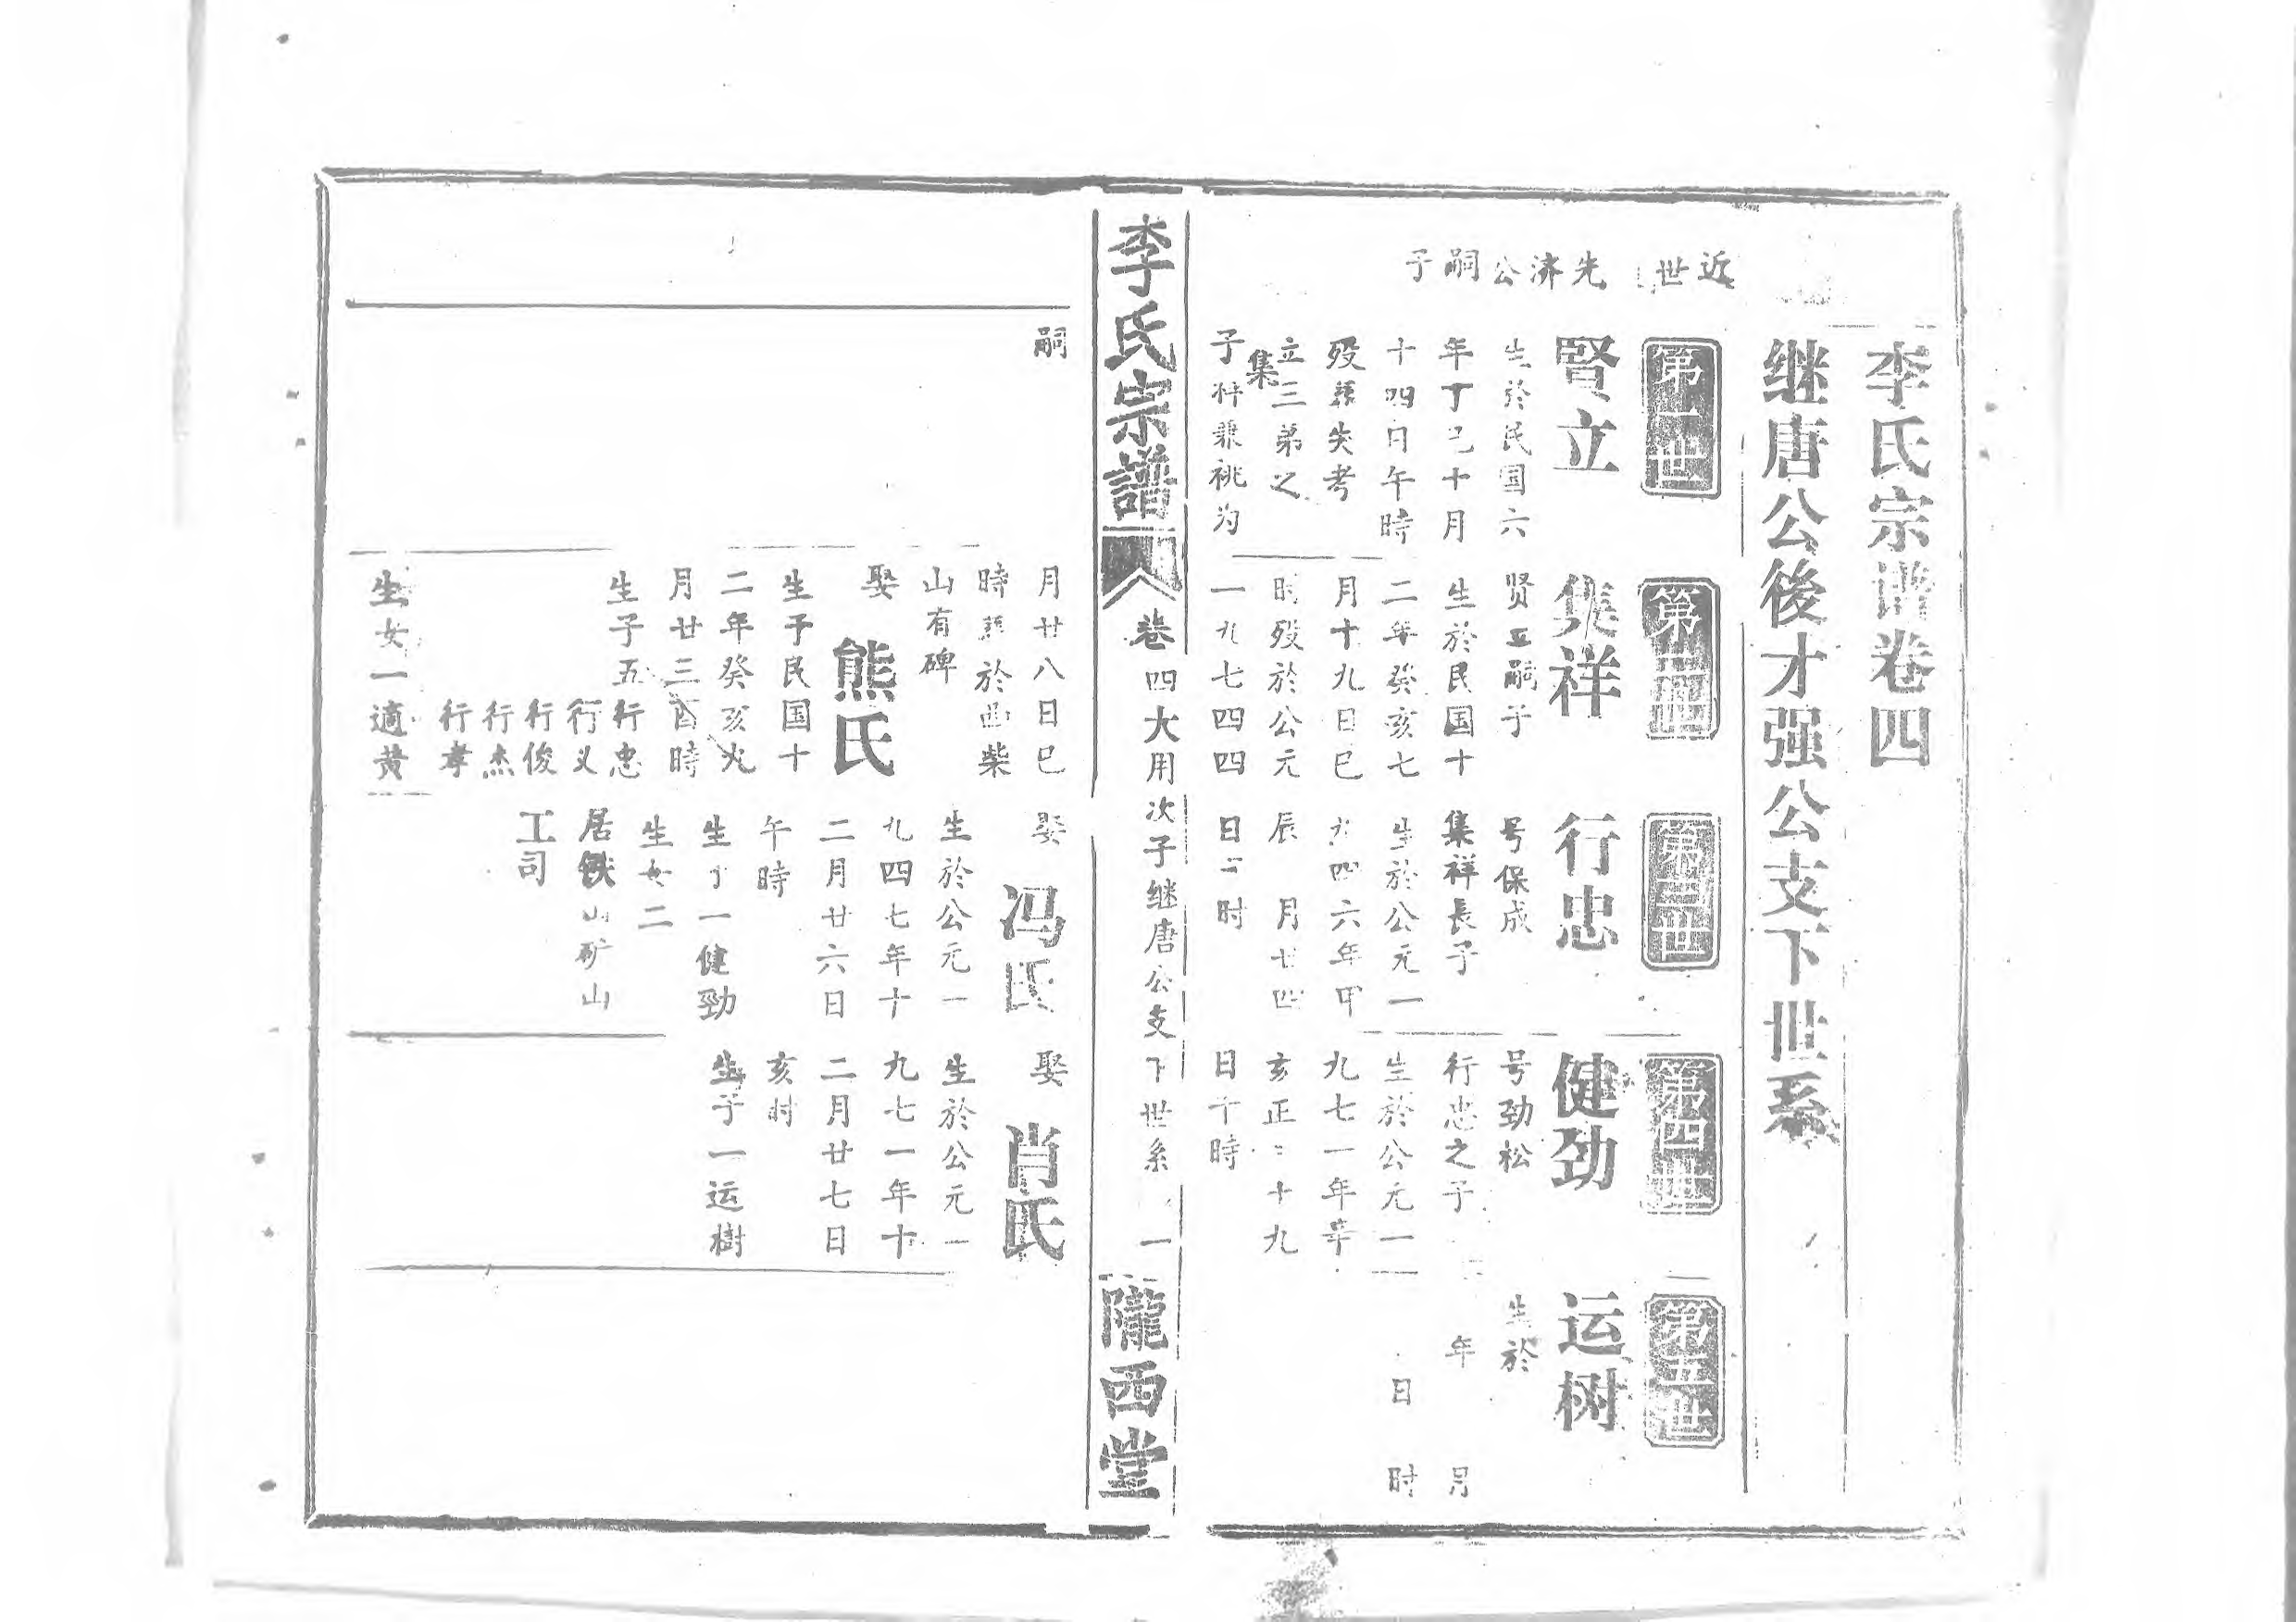 李氏宗谱卷四
继唐公後才强公支下世系
近世
先济公嗣子
第一世
賢立
生於民国六
年丁巳十月
十四日午時
殁葬失考
立三弟之
集
子祥兼祧为
嗣
第二世
集祥
贤立嗣子
生於民国十
二年癸亥七
月十九日巳
时殁於公元
一九七四四
月廿八日巳
時葬於曲柴
山有碑
娶
熊氏
生于民国十
二年癸亥
月廿三酉時
生子五
行忠
行义
行俊
行杰
行孝
生女一適黄
第三世
行忠
号保成
集祥長子
生於公元一
九四六年甲
辰 月廿四
日 时
娶
冯氏
生於公元一
九四七年十
二月廿六日
午時
生子一健勁
生女二
居铁山矿山
工司
第四世
健劲
号劲松
行忠之子
生於公元一
九七一年辛
亥正二十九
日午時
娶
肖氏
生於公元一
九七一年十
二月廿七日
亥时
生子一运樹
第五世
运树
生於
年 月
日 时
李氏宗譜
卷四大用次子继唐公支下世系 一
隴西堂